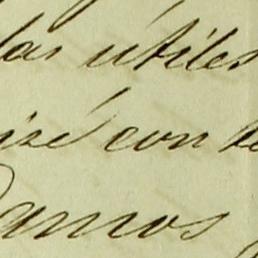 las útiles
izé con
amos